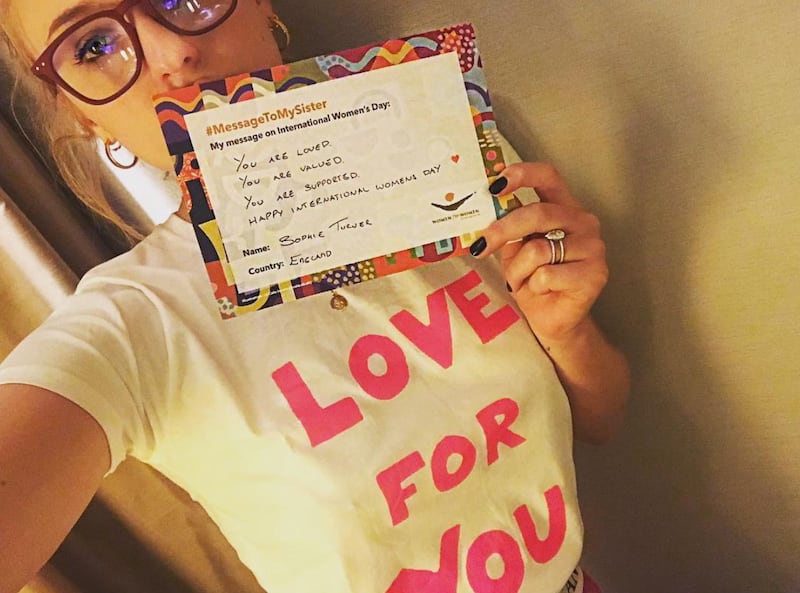 #MessageToMySister
My message on International Women's Day:
YOU ARE LOVED.
YOU ARE VALUED.
YOU ARE SUPPORTED.
HAPPY INTERNATIONAL WOMENS DAY
WOMEN FOR WOMEN
Name: SOPHIE TURNER
Country: ENGLAND
LOVE
FOR
YOU